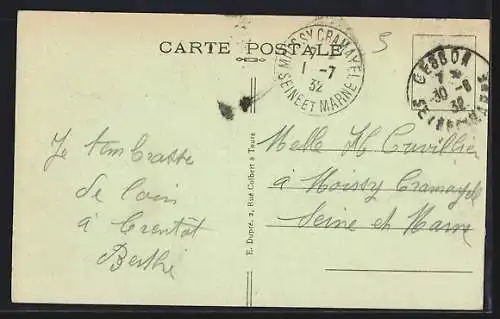 CARTE POSTALE
5
MOISSY CRAMAYEL
1 -7
32
SEINE ET MARNE
CESSON
30 -6
32
Je t'embrasse
de loin
à bientôt
Berthe
E. Dupré, 2, Rue Colbert à Tours
Melle H Cuvillier
à Moissy Cramayel
Seine et Marne